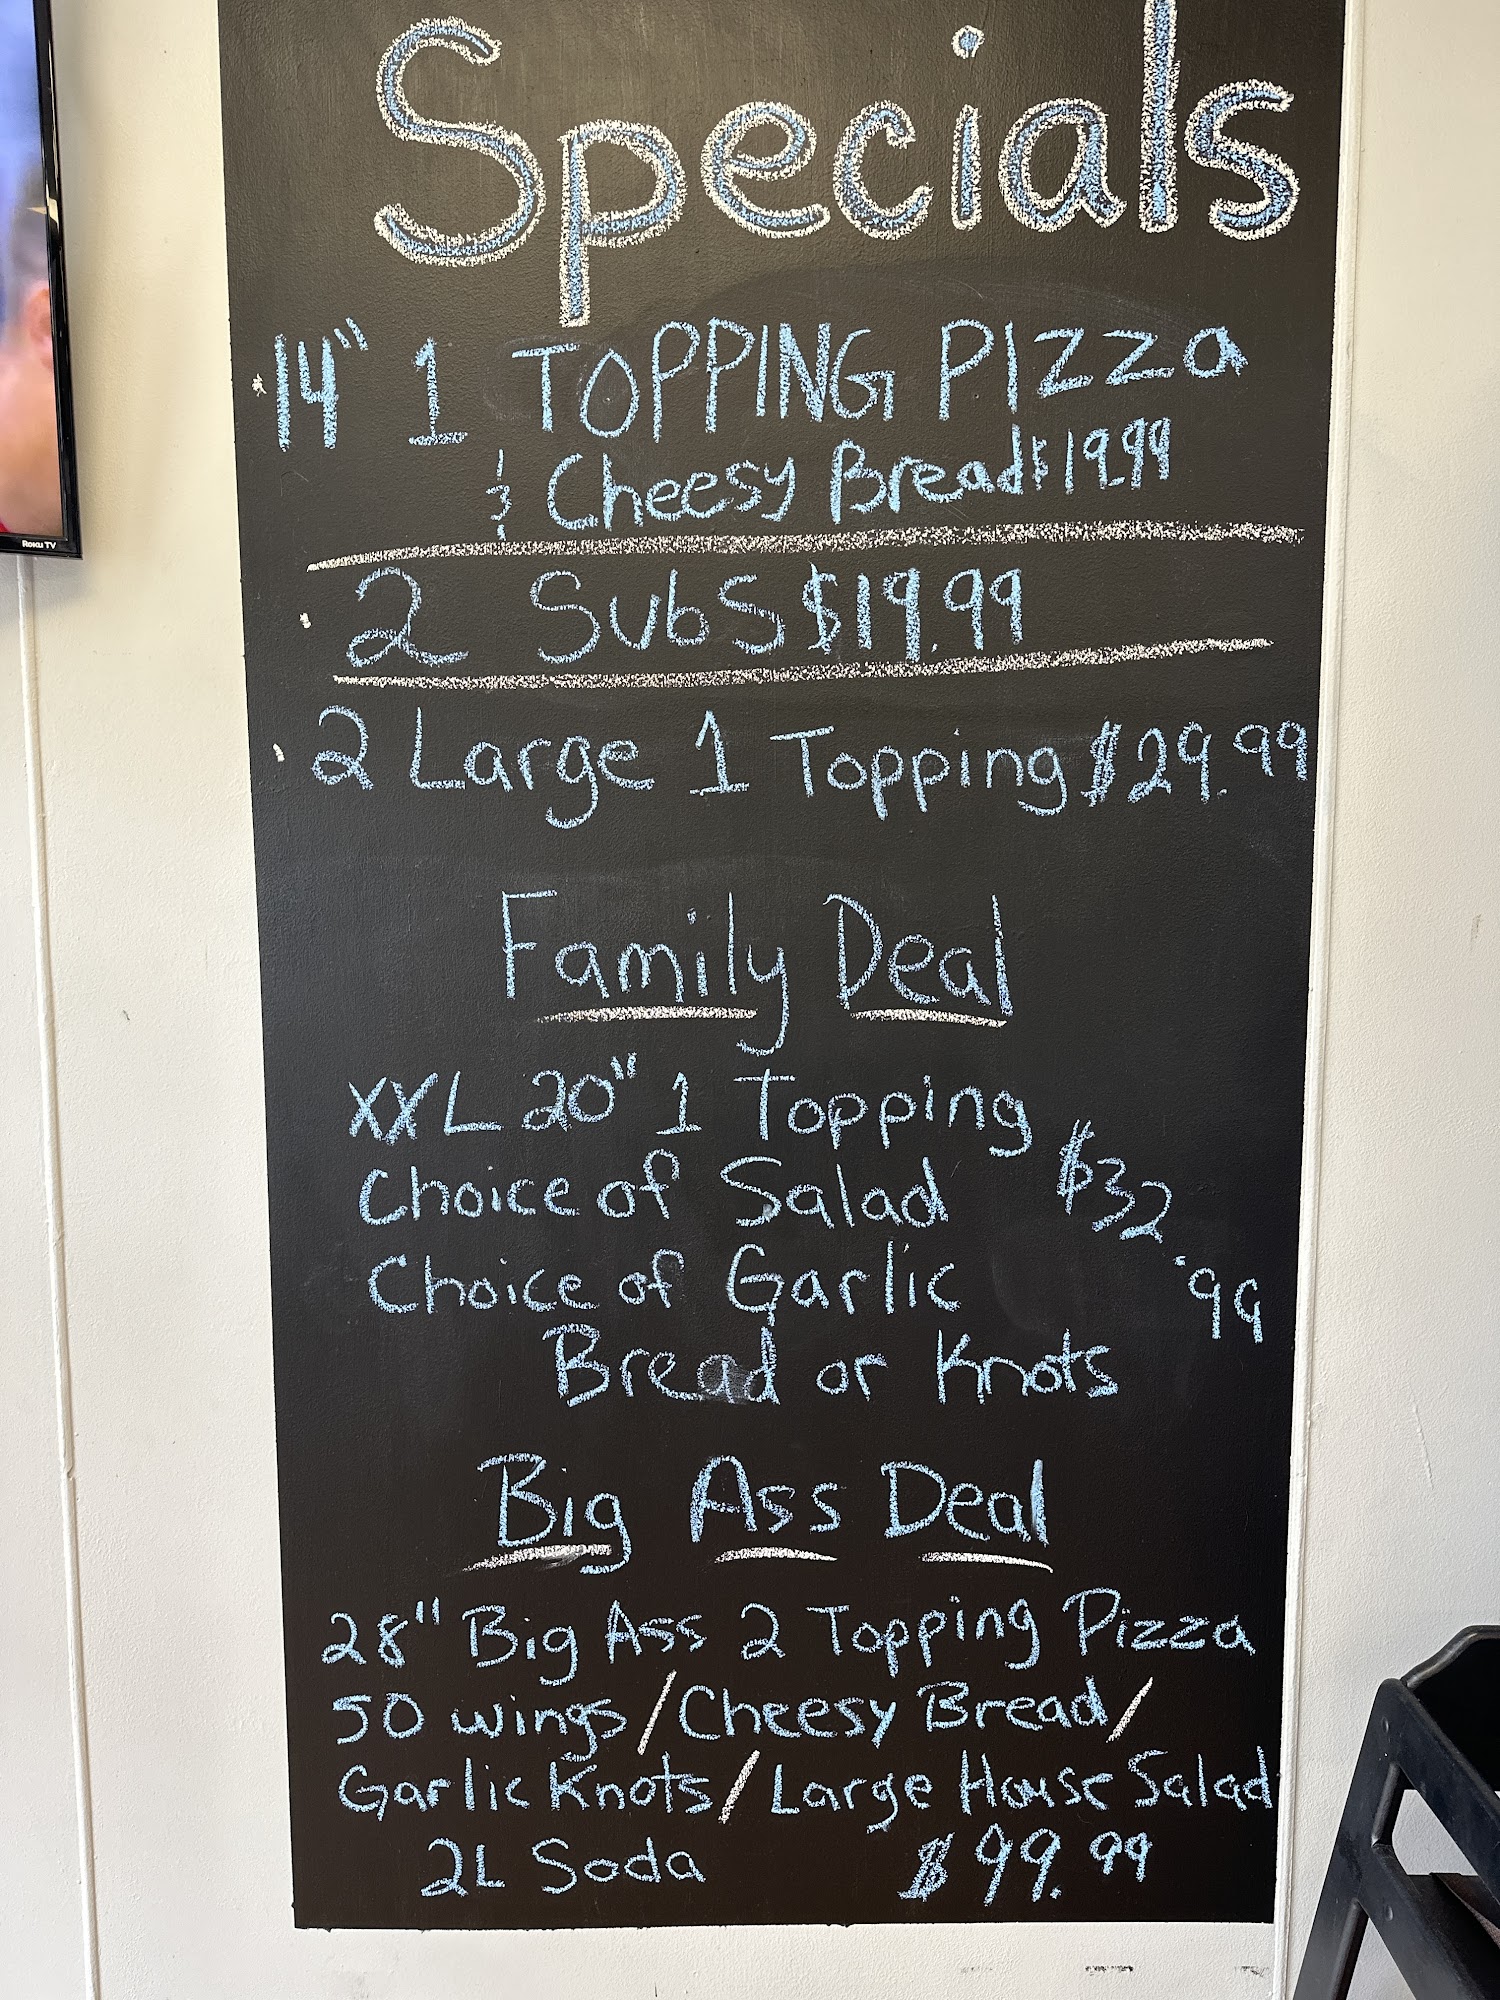 Specials
14" 1 TOPPING PIZZa
& Cheesy Bread $19.99
2 SubS $19.99
2 Large 1 Topping $29.99
Family Deal
XXL 20" 1 Topping
Choice of Salad
$32.99
Choice of Garlic
Bread or Knots
Big Ass Deal
28" Big Ass 2 Topping Pizza
50 wings/Cheesy Bread/
Garlic Knots/Large House Salad
2L Soda $99.99
Roku TV